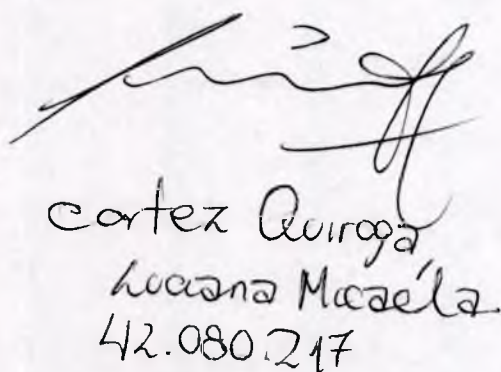 Cortez Quiroga,
Luciana Micaela
42.080.217